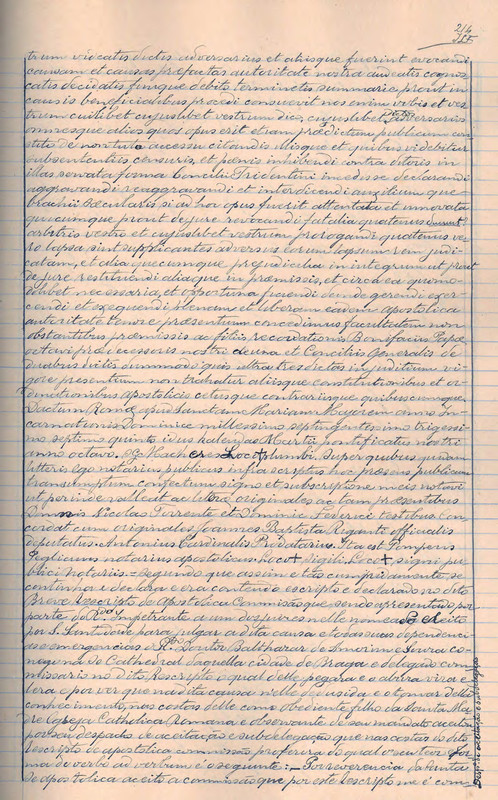 trum vidcatis dictis adversarius et aliisque fuerint evocandi
causam et causas præfactas autoritate nostra
catis decidatis finique debito terminetis summarie prout in
causis beneficialibus procedi consuevit nos enim vobis et ves
trum cuilibet cujuslibet vestrum dicto, cujuslibet adversarios
omnesque alios quos opus erit etiam prædictum publicum
de non tuto accessu citandis illisque et quibus videbitur
sub sententiis censuris, et pœnis inhibendi contra dictos in
illas servata forma Concilii Tridentini incidisse declarandi
aggravandi reaggravandi et interdicendi auxilium que
brachii sæcularis si ad hoc opus fuerit attentata et innovata
quæcumque prout de jure revocandi fatalia quatenus
arbitris vestro et cujuslibet vestrum prorogandi quatenus ve
ro lapsa sint supplicantes adversus eorum lapsum rem judi
catam, et alia quæcumque prejudicilia in integrum ut prout
de jure restituendi aliaque in præmissis, et circa ea quomo
dolibet necessaria, et opportuna faciendi gerendi exer
cendi et exequendi plenam et liberam eadem apostolica
autoritate tenore præsentium concedimus facultatem non
obstantibus præmissis ac felicis recordationis Bonifacii Papæ
octavi predecessoris nostri de una et Concilii Generalis de
duabus dietis summodo quis ultra tres dietas in juditium vi
gore presentium non trahatur aliisque constitutionibus et or
dinationibus apostolicis ceterisque contrariisque quibuscumque
Dactum Romæ apud Sanctam Mariam Majorem anno In
carnationis Dominice millesimo septingentesimo trigessi
mo septimo quinto idus kalendas Martii pontificatus nostri
anno octavo. Loco + plumbi. Super quibus quidem
litteris ego notarius publicus infra scriptus hoc presens publicum
transumptum confectum signo et subscriptione meis notavi
ut perinde valleat ac litere originales actum præsentibus
Dominis Nicolao Torrente et Dominic Federici testibus Con
cordat cum originales Joannes Baptista Regante officialis
deputatus. Antonius Cardinalis Prodatarius. Ita est Pomperis
notarius apostolicus. Loco + sigili. Loco + signi pu
blici notaris. = Segundo que assim e tão cumpridamente, se
continha e declara e era contendo escripto e declarado no dito
Breve Rescripto de Apostolica Commisão que sendo apresentado por
parte do Rdo. Impetrante a um dos juizes nelle nomeado eleito
por S. Santidade para julgar a dita causa e todas suas dependenci
as e emergencias o R. Doutor Balthazar de Amorim e Lyvra co
nego na Sé Cathedral daquella cidade de Braga e delegado com
missario no dito Rescripto o qual delle pegara e o abrira vira e
lera e por ver que na dita causa nelle deduzida e o tomar delle
conhecimento, nas costas delle como obediente filho da Santa Ma
dre Igreja Catholica Romana e observante de seu mandato acabi
por seu despacho de aceitação e subdelegação que nas costas do dito
Rescripto de apostolica commissão proferira do qual o seu teor e for
ma de verbo ad verbum é o seguinte: — Por reverencia da Santa
Sé apostolica aceito a commissão que por este Rescripto me é com